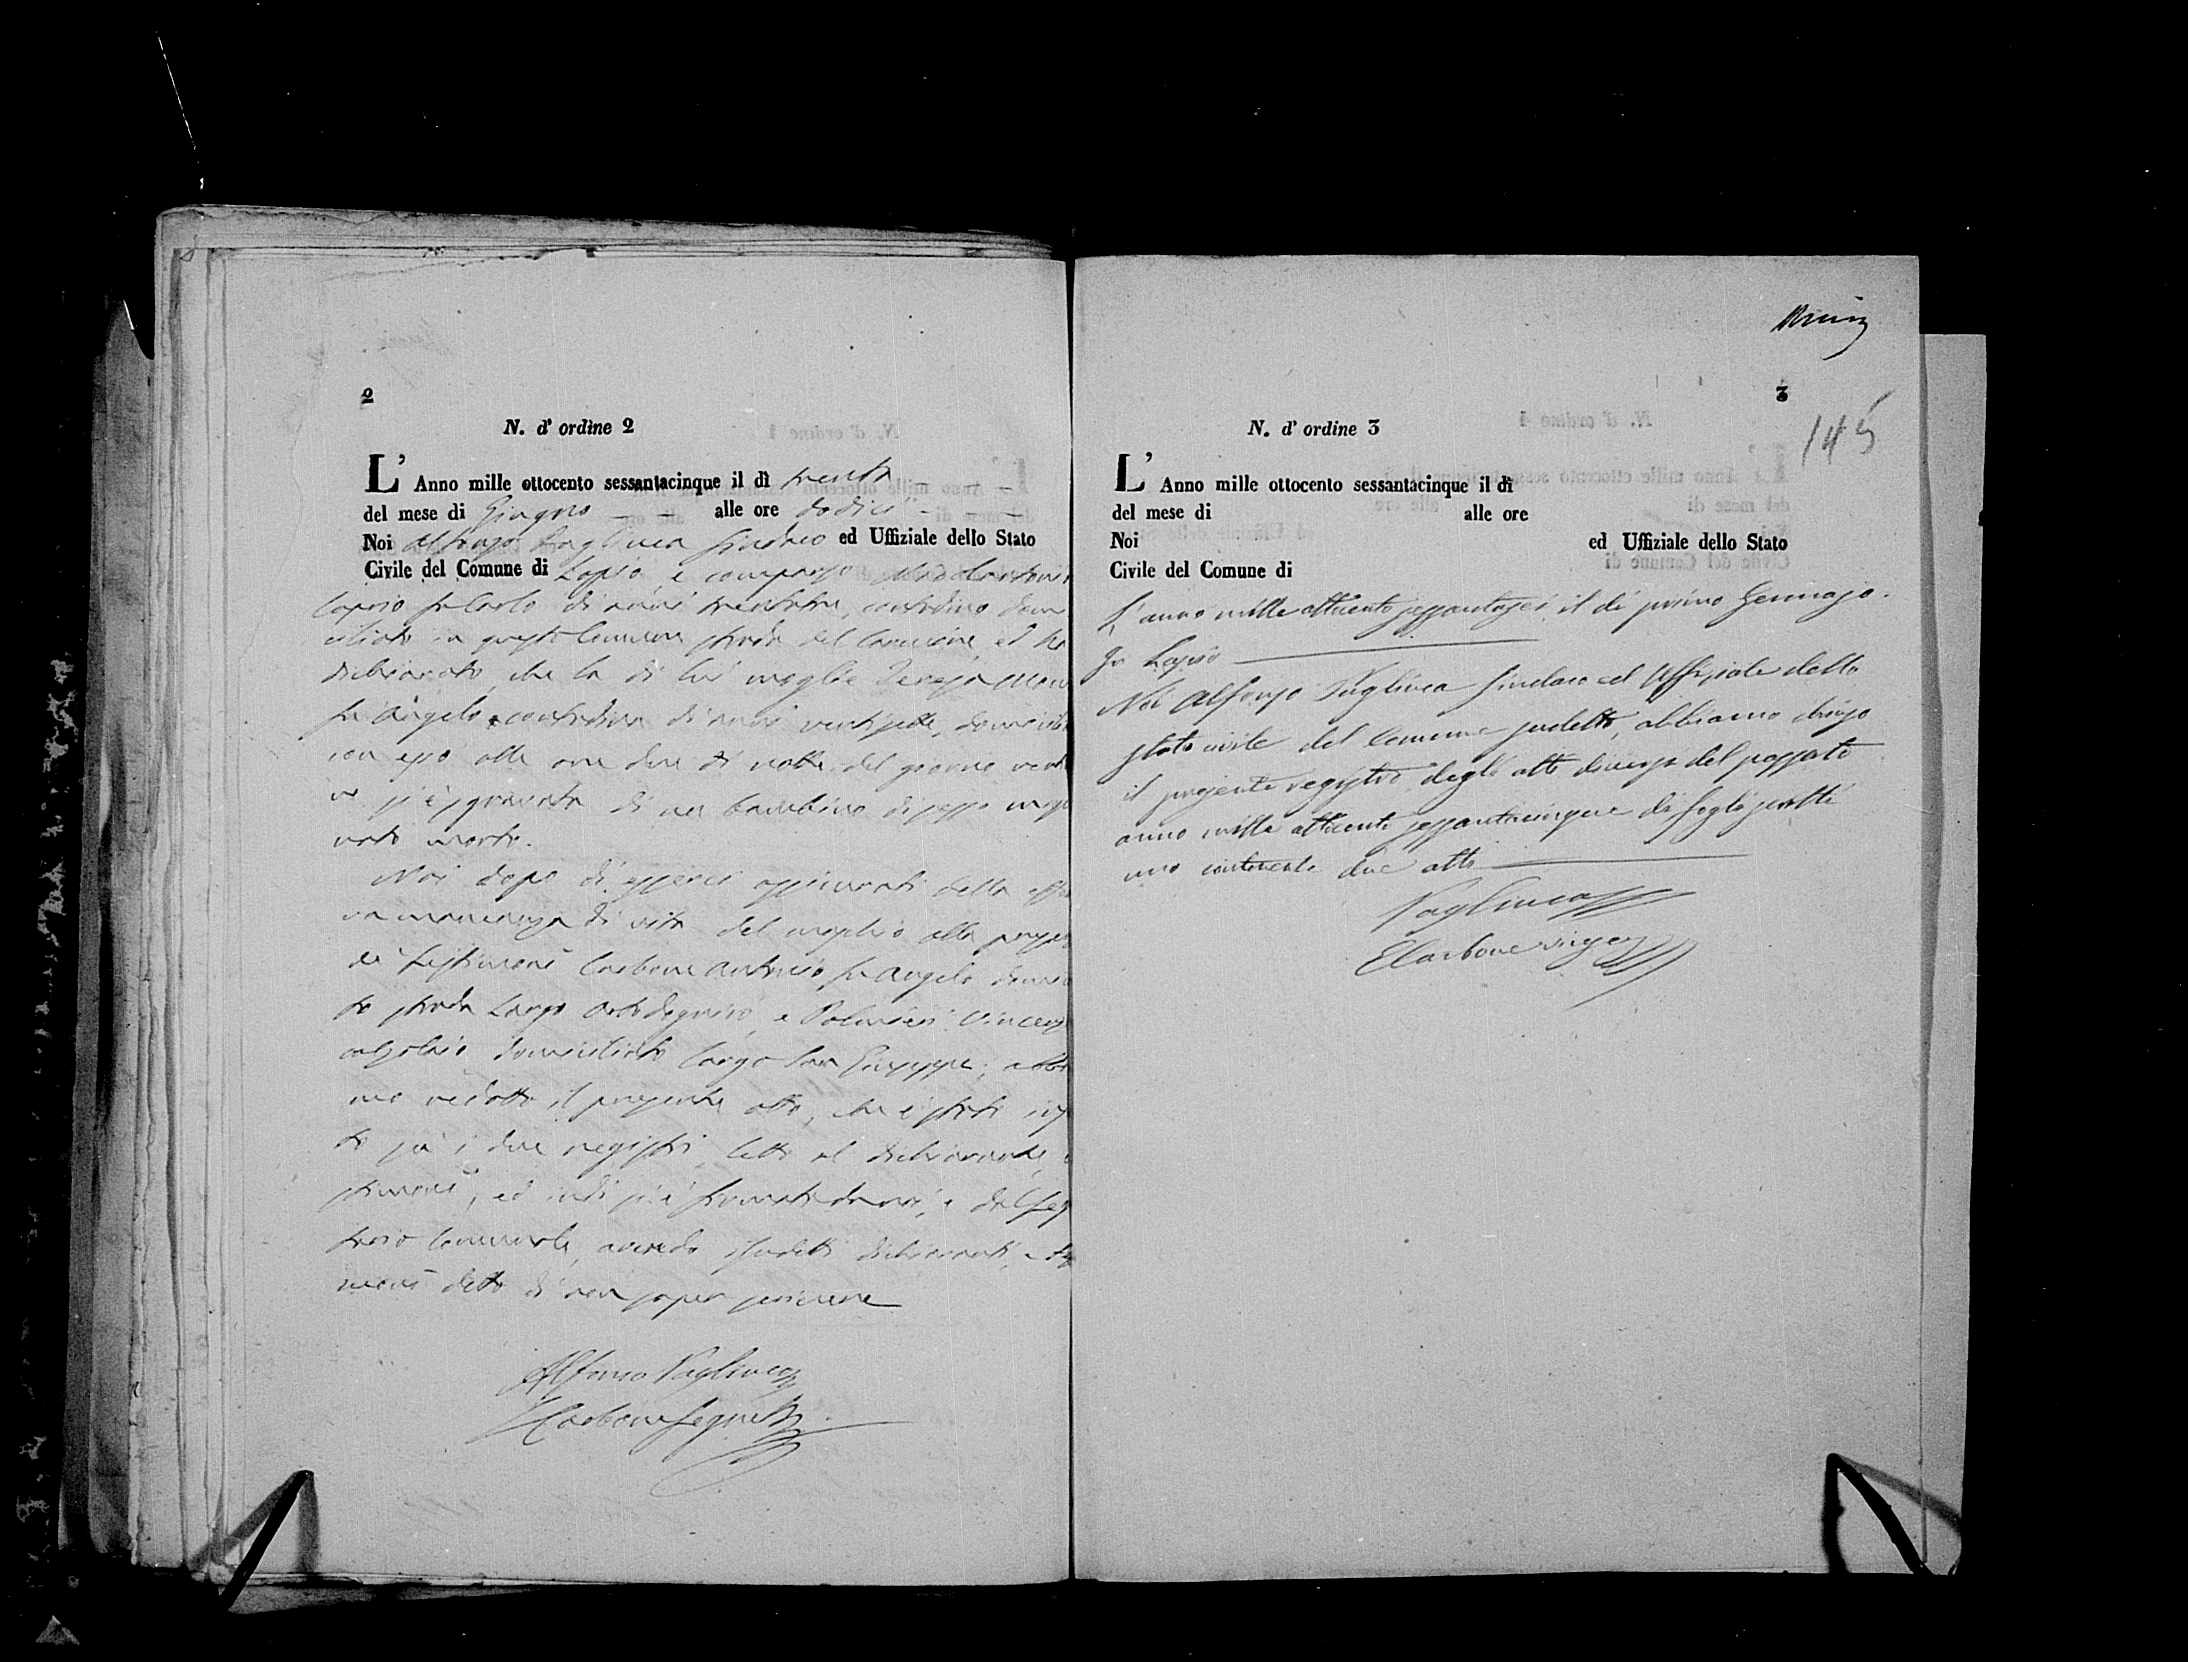 2
N. d' ordine 2
L' Anno mille ottocento sessantacinque il dì trenta
del mese di Giugno alle ore dodici
Noi Alfonso Pagliuca Sindaco ed Uffiziale dello Stato
Civile del Comune di Lapio, è comparso
Caprio fu Carlo di anni trentatre, contadino domi
ciliato in questo Comune strada del Cannone, ed ha
dichiarato, che la di lui moglie Teresa
fu Angelo contadina di anni ventisette, domicilia
con esso alle ore due di notte del giorno vent
si è sgravata di un bambino di sesso masc
nato morto.
Noi dopo di esserci assicurati della effet
va mancanza di vita del maschio alla presen
di testimoni Carbone Antonio fu Angelo domici
to strada Largo e Polmieri Vincenz
calzolaio domiciliato Largo San Giuseppe; abbia
mo redatto il presente atto, che è stato iscr
to su i due registri, letto al dichiarante,
stimoni, ed indi si è firmato da noi, e dal Seg
tario Comunale, avendo i sudetti dichiaranti, e tes
moni detto di non saper scrivere
Alfonso Pagliuca
Carbone Segret
3
145
N. d' ordine 3
L' Anno mille ottocento sessantacinque il dì
del mese di alle ore
Noi ed Uffiziale dello Stato
Civile del Comune di
L'anno mille ottocento sessantasei, il dì primo Gennajo.
In Lapio
Noi Alfonso Pagliuca Sindaco ed Uffiziale dello
stato civile del Comune sudetto, abbiamo chiuso
il presente registro degli atti diversi del passato
anno mille ottocento sessantacinque di fogli scritti
uno contenente due atti
Pagliuca
Carbone